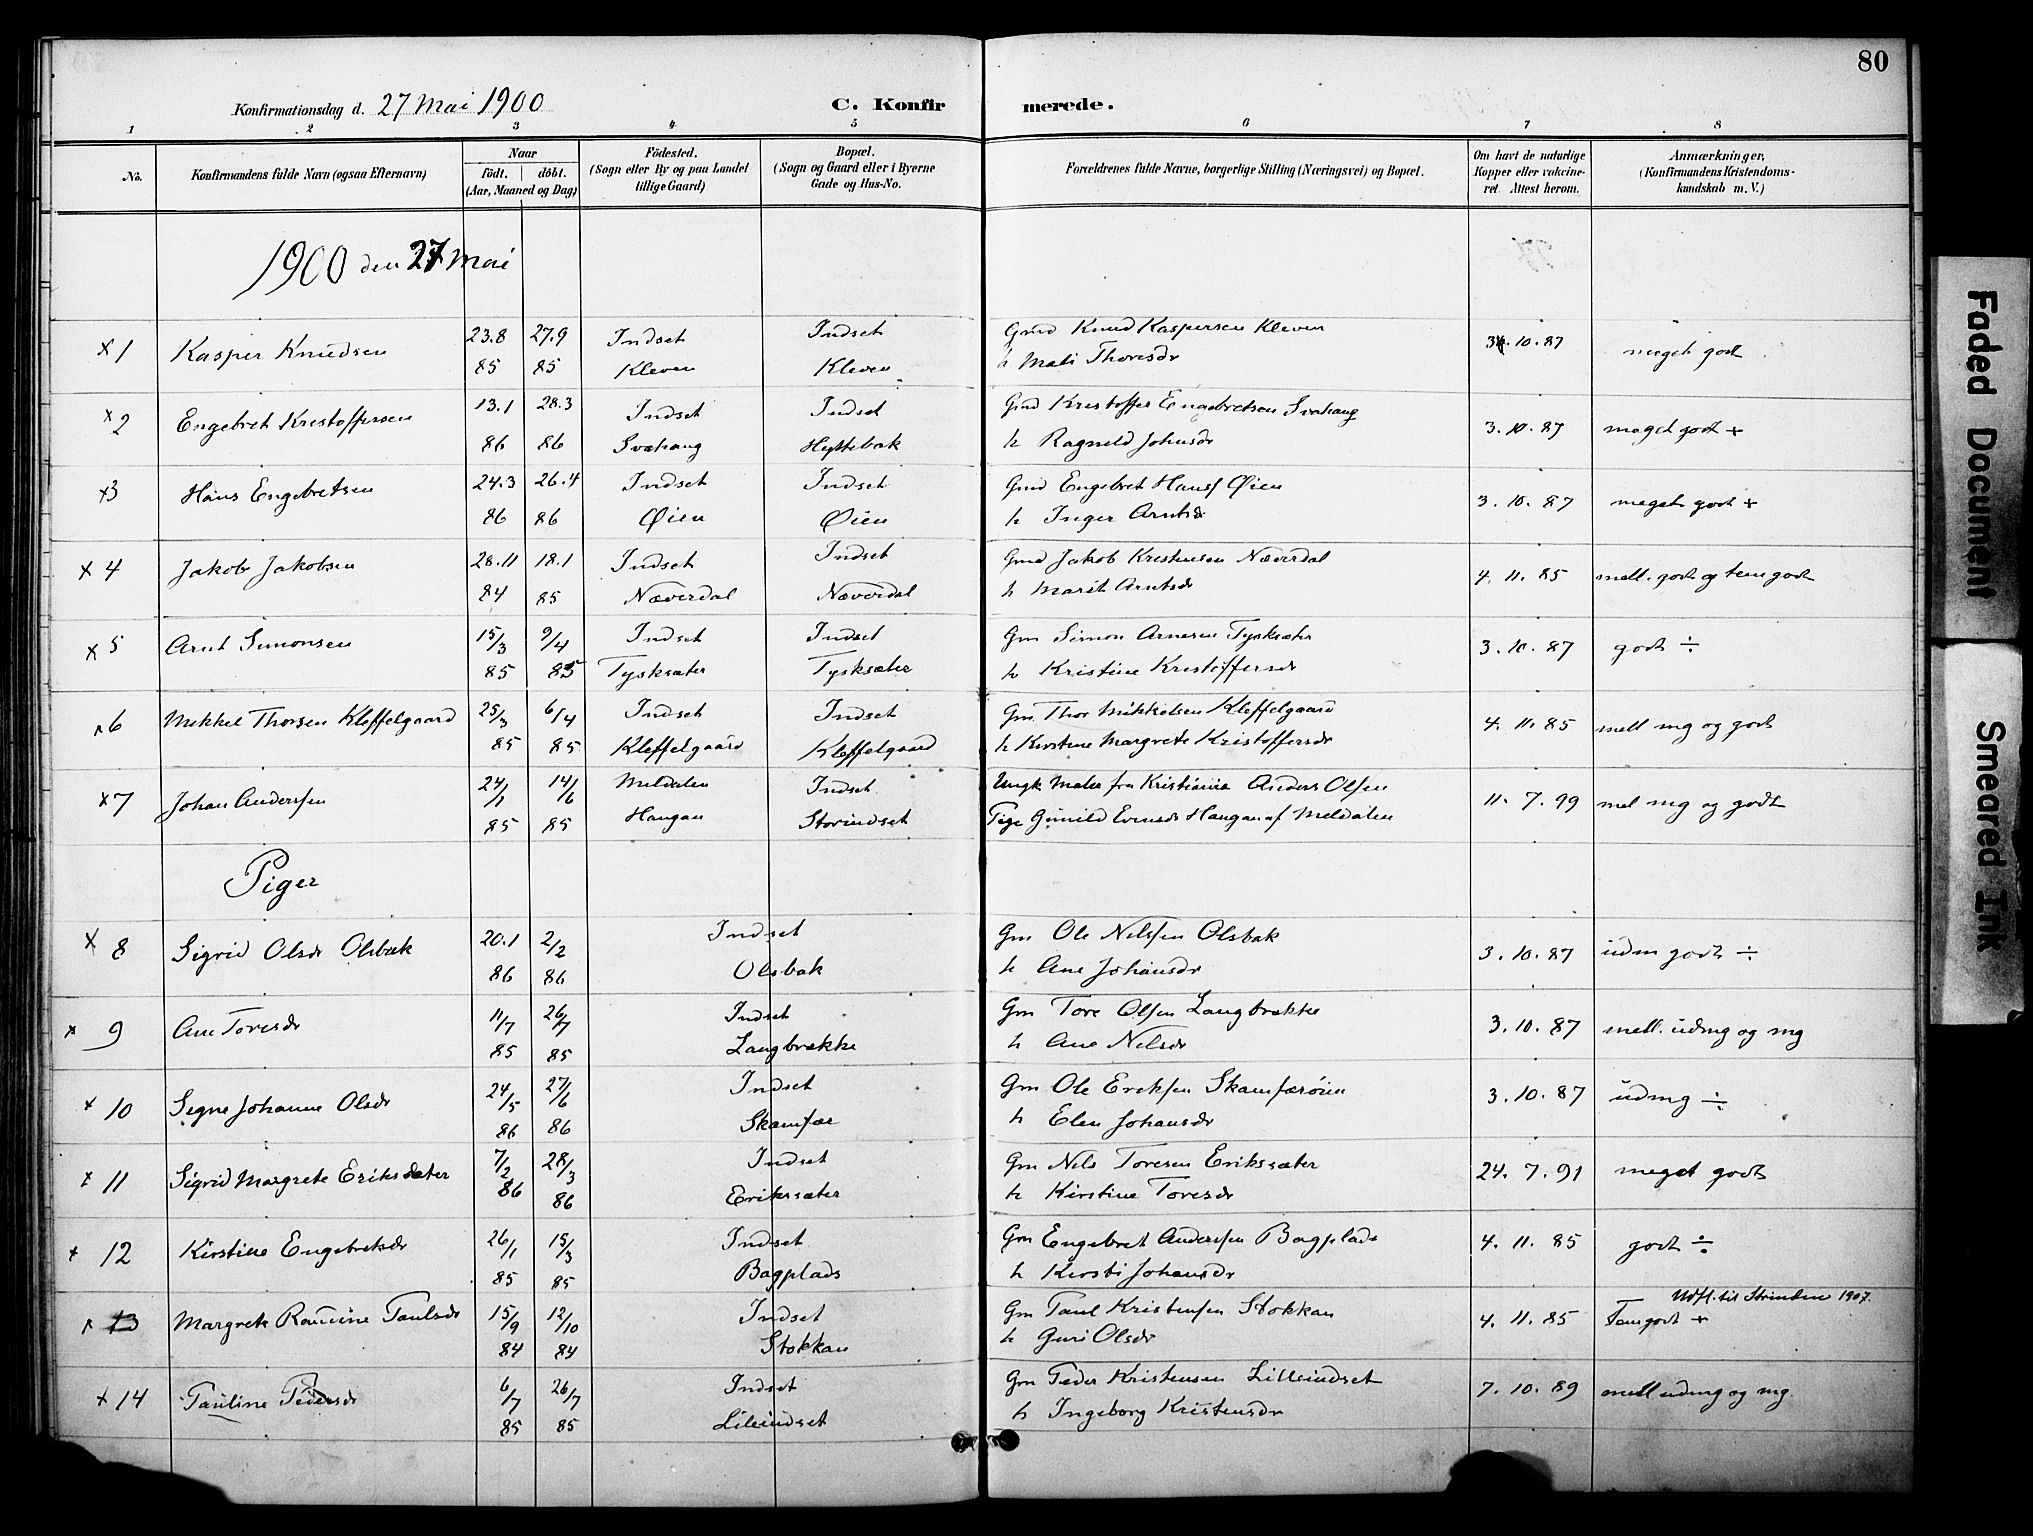 80
Konfirmationsdag d. 27 Mai 1900
C. Konfirmerede.
1 2 3 4 5 6 7 8
No.
Konfirmandens fulde Navn (ogsaa Efternavn)
Naar
födt. döbt.
(Aar, Maaned og Dag)
Födested.
(Sogn eller By og paa Landet tillige Gaard)
Bopæl.
(Sogn og Gaard eller i Byerne Gade og Hus-No.
Forældrenes fulde Navne, borgerlige Stilling (Næringsvei) og Bopæl.
Om havt de naturlige Kopper eller vakcineret. Attest herom.
Anmærkninger,
(Konfirmandens Kristendomskundskab m. V.)
1900 den 27 Mai
x 1 Kasper Knudsen 23.8 85 27.9 85 Indset Kleven Indset Kleven
Gmd Knud Kaspersen Kleven
h Mali Thoresdr
3.10.87 meget godt
x 2 Engebret Kristoffersen 13.1 86 28.3 86 Indset Svahaug Indset Hyttebak
Gmd Kristoffer Engebretsen Svahaug
h Ragnild Johnsdr
3.10.87 meget godt +
x 3 Hans Engebretsen 24.3 86 26.4 86 Indset Øien Indset Øien
Gmd Engebret Hans Øien
h Inger Arntsdr
3.10.87 meget godt +
x 4 Jakob Jakobsen 28.11 84 18.1 85 Indset Næverdal Indset Næverdal
Gmd Jakob Kristensen Næverdal
h Marit Arntsdr
4.11.85 mell. godt og temgodt
x 5 Arnt Simonsen 15/3 85 9/4 85 Indset Tysksæter Indset Tysksæter
Gm Simon Arnesen Tysksæter
h Kristine Kristoffersdr
3.10.87 godt ÷
x 6 Mikkel Thorsen Kleffelgaard 25/3 85 6/4 85 Indset Kleffelgaard Indset Kleffelgaard
Gm Thor Mikkelsen Kleffelgaard
h Kirstine Margrete Kristoffersdr
4.11.85 mell mg og godt
x 7 Johan Andersen 24/1 85 14/6 85 Meldalen Haugan Indset Storindset
Ungk Maler fra Kristiania Anders Olsen
Pige Gunild Evensdr Haugan af Meldalen
11.7.99 mel mg og godt
Piger
x 8 Sigrid Olsdr Olsbak 20.1 86 2/2 86 Indset Olsbak
Gm Ole Nilssen Olsbak
h Ane Johansdr
3.10.87 udm godt ÷
x 9 Ane Toresdr 11/7 85 26/7 85 Indset Langbrække
Gm Tore Olsen Langbrække
h Ane Nilsdr
3.10.87 mell. udmg og mg
x 10 Signe Johanne Olsdr 24/5 86 27/6 86 Indset Skamfær
Gm Ole Eriksen Skamfærøien
h Elen Johansdr
3.10.87 udmg ÷
x 11 Sigrid Margrete Eriksdæter 7/2 86 28/3 86 Indset Erikssæter
Gm Nils Toresen Erikssæter
h Kirstine Toresdr
24.7.91 meget godt
x 12 Kirstine Engebretsdr 26/1 85 15/3 85 Indset Bagplads
Gm Engebret Anderssen Bagplads
h Kirsti Johansdr
4.11.85 godt ÷
x 13 Margrete Paulsdr 15/9 84 12/10 84 Indset Stokkan
Gm Paul Kristensen Stokkan
h Guri Olsdr
4.11.85 Temgodt +
Udfl. til Strinden 1907.
x 14 Pauline Pedersdr 6/7 85 26/7 85 Indset Lilleindset
Gm Peder Kristensen Lilleindset
h Ingeborg Kristensdr
7.10.89 mell udmg og mg.
Faded Document
Smeared Ink